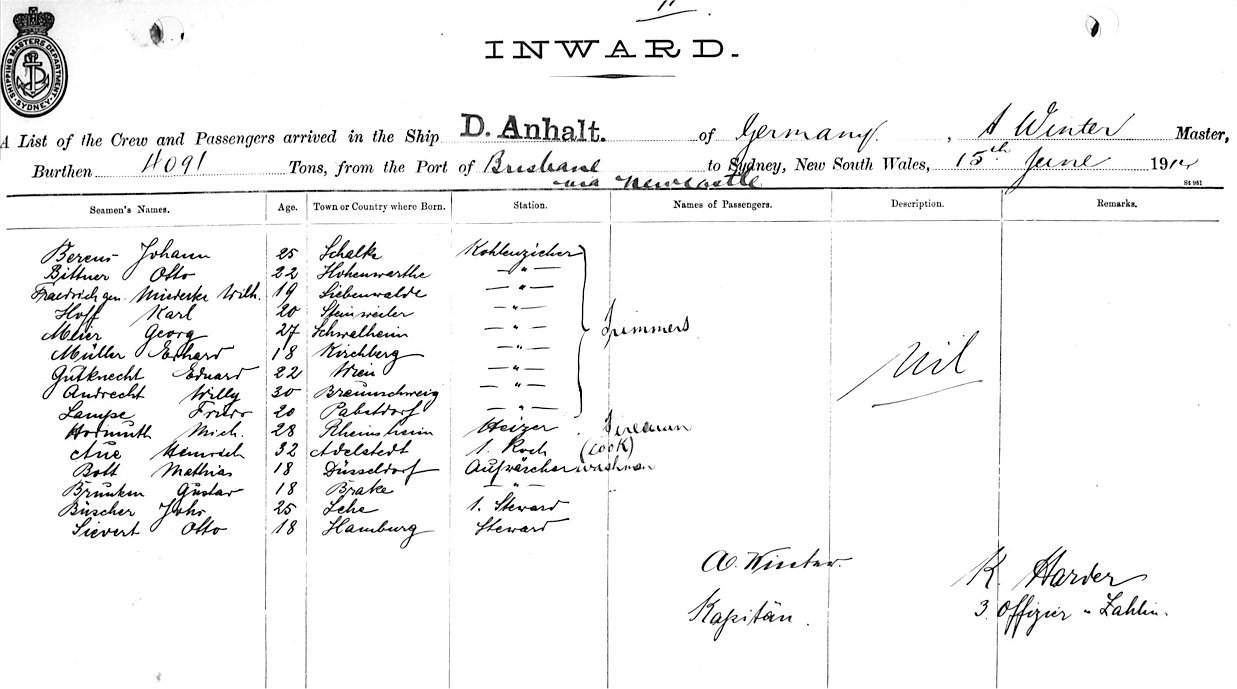 11.
INWARD.
SHIPPING MASTERS DEPARTMENT
SYDNEY
A List of the Crew and Passengers arrived in the Ship D. Anhalt. of Germany, A Winter Master,
Burthen 4091 Tons, from the Port of Brisbane to Sydney, New South Wales, 15th June 191
via Newcastle
St 951
Seamen's Names. Age. Town or Country where Born. Station. Names of Passengers. Description. Remarks.
Berens Johann 25 Schalke Kohlenzieher
Bittner Otto 22 Hohenwarthe —"—
Friedrich gen. Niederke Wilh. 19 Siebenwalde —"—
Hoff Karl 20 Steinweiler —"—
Meier Georg 27 Schwalheim —"— Trimmers
Müller Erhard 18 Kirchberg —"—
Gutknecht Eduard 22 Wien —"— Nil
Andrecht Willy 30 Braunschweig —"—
Lampe 20 Pabstdorf —"—
Hormuth Mich. 28 Rheinsheim Heizer Fireman
Aue Heinrich 32 Adelstedt 1. Koch (cook)
Bott Mathias 18 Düsseldorf Aufwäscher washman
Brunken Gustav 18 Brake —"—
Büscher Johs 25 Lehe 1. Steward
Sievert Otto 18 Hamburg Steward
A. Winter. K. Harder
Kapitän. 3. Offizier u. Zahlm.